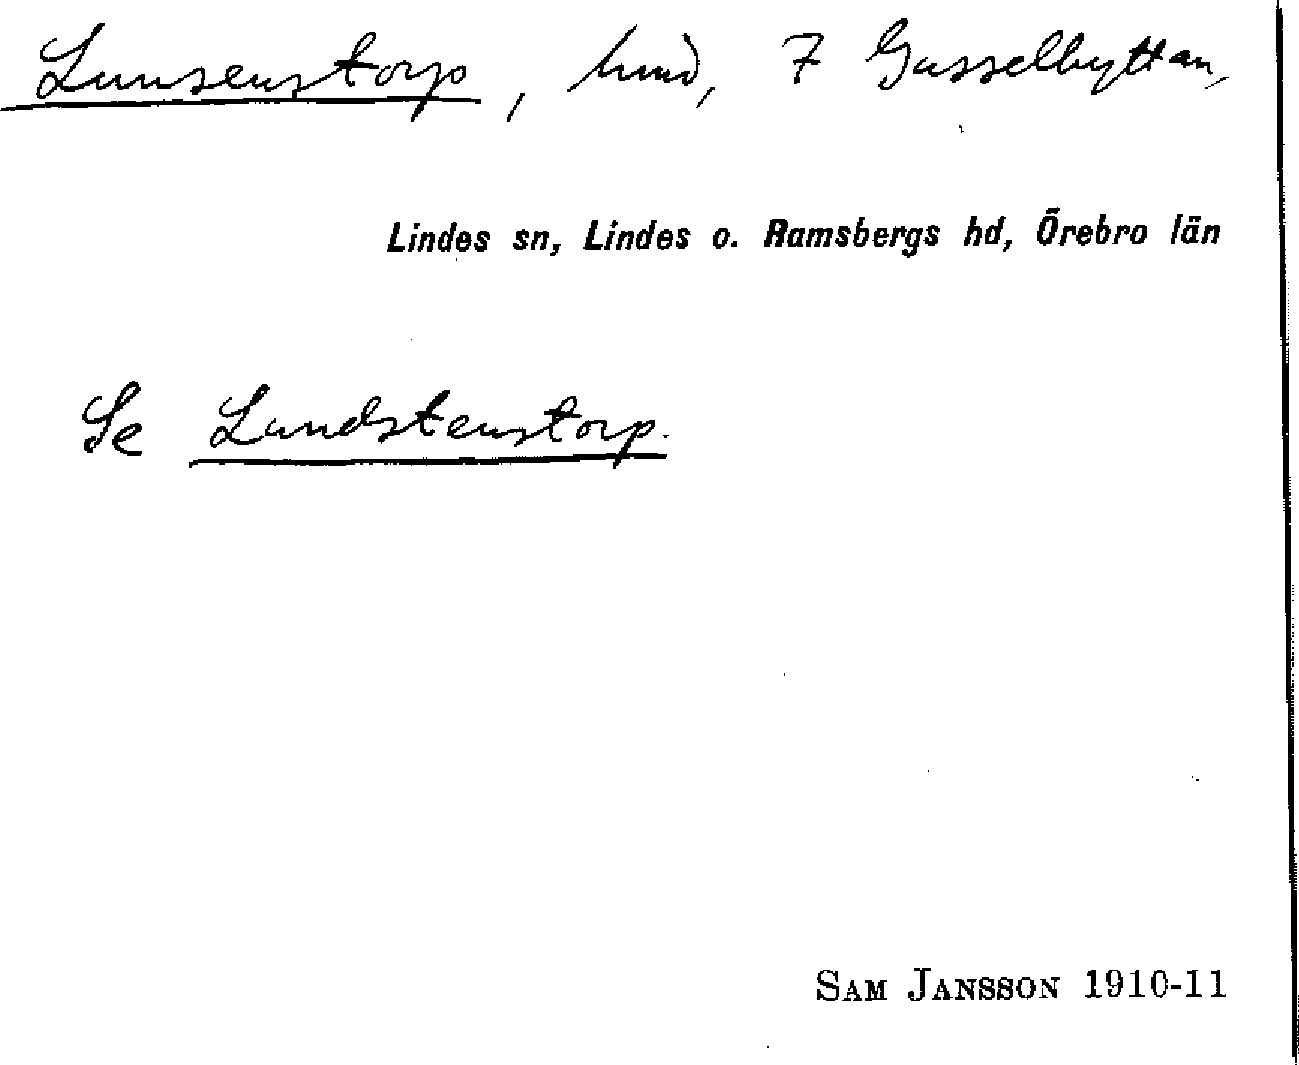 Lunsenstorp, hmd, 7 Gusselhyttan,
Lindes sn, Lindes o. Ramsbergs hd, Örebro län
Se Lundstenstorp.
SAM JANSSON 1910-11